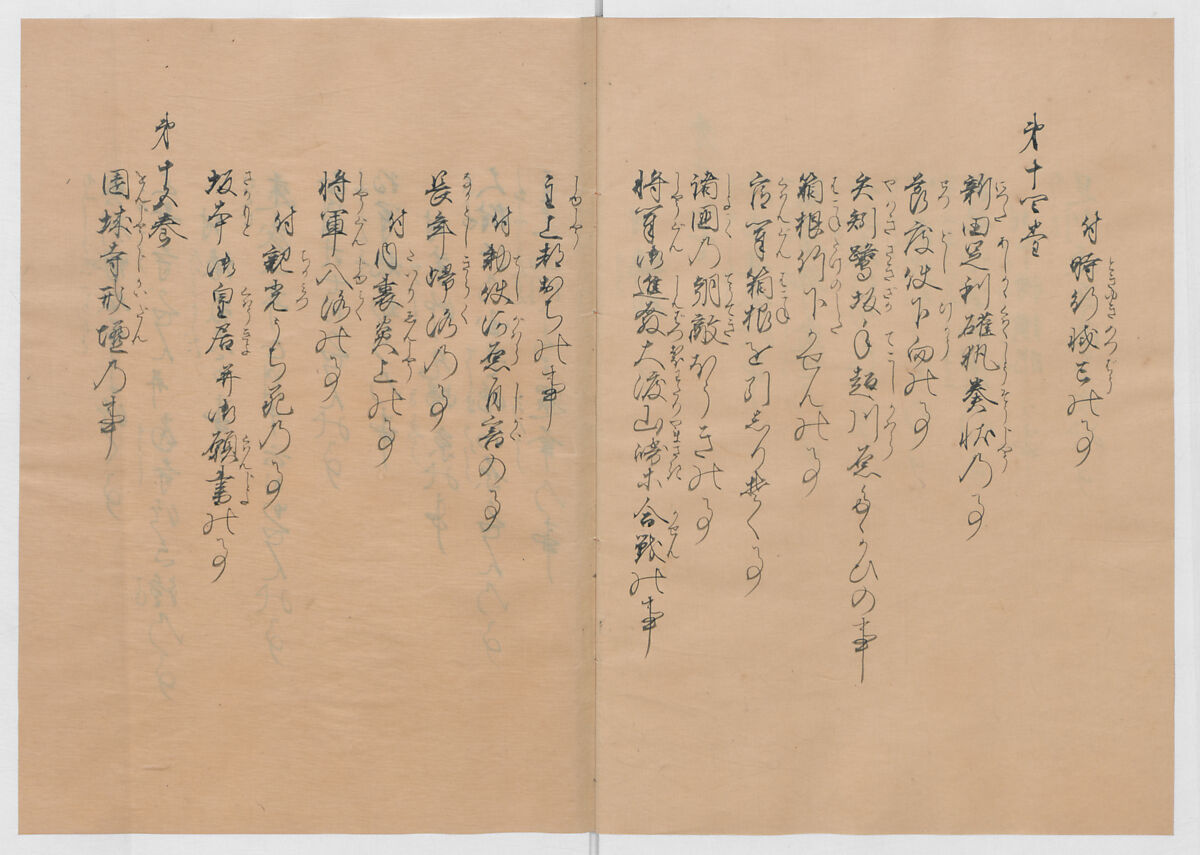 付時行滅亡の事
第十四巻
新田足利確執奏状乃事
節度使下向の事
矢矧鷺坂手越川原たゝかひの事
箱根竹下かせんの事
官軍箱根を引しりそく事
諸国乃朝敵ほうきの事
将軍御進発大渡山崎等合戦の事
主上都おちの事
付勅使河原自害の事
長年帰洛乃事
付内裏炎上の事
将軍入洛の事
付親光うち死乃事
坂本御皇居并御願書の事
第十五巻
園城寺戒壇乃事